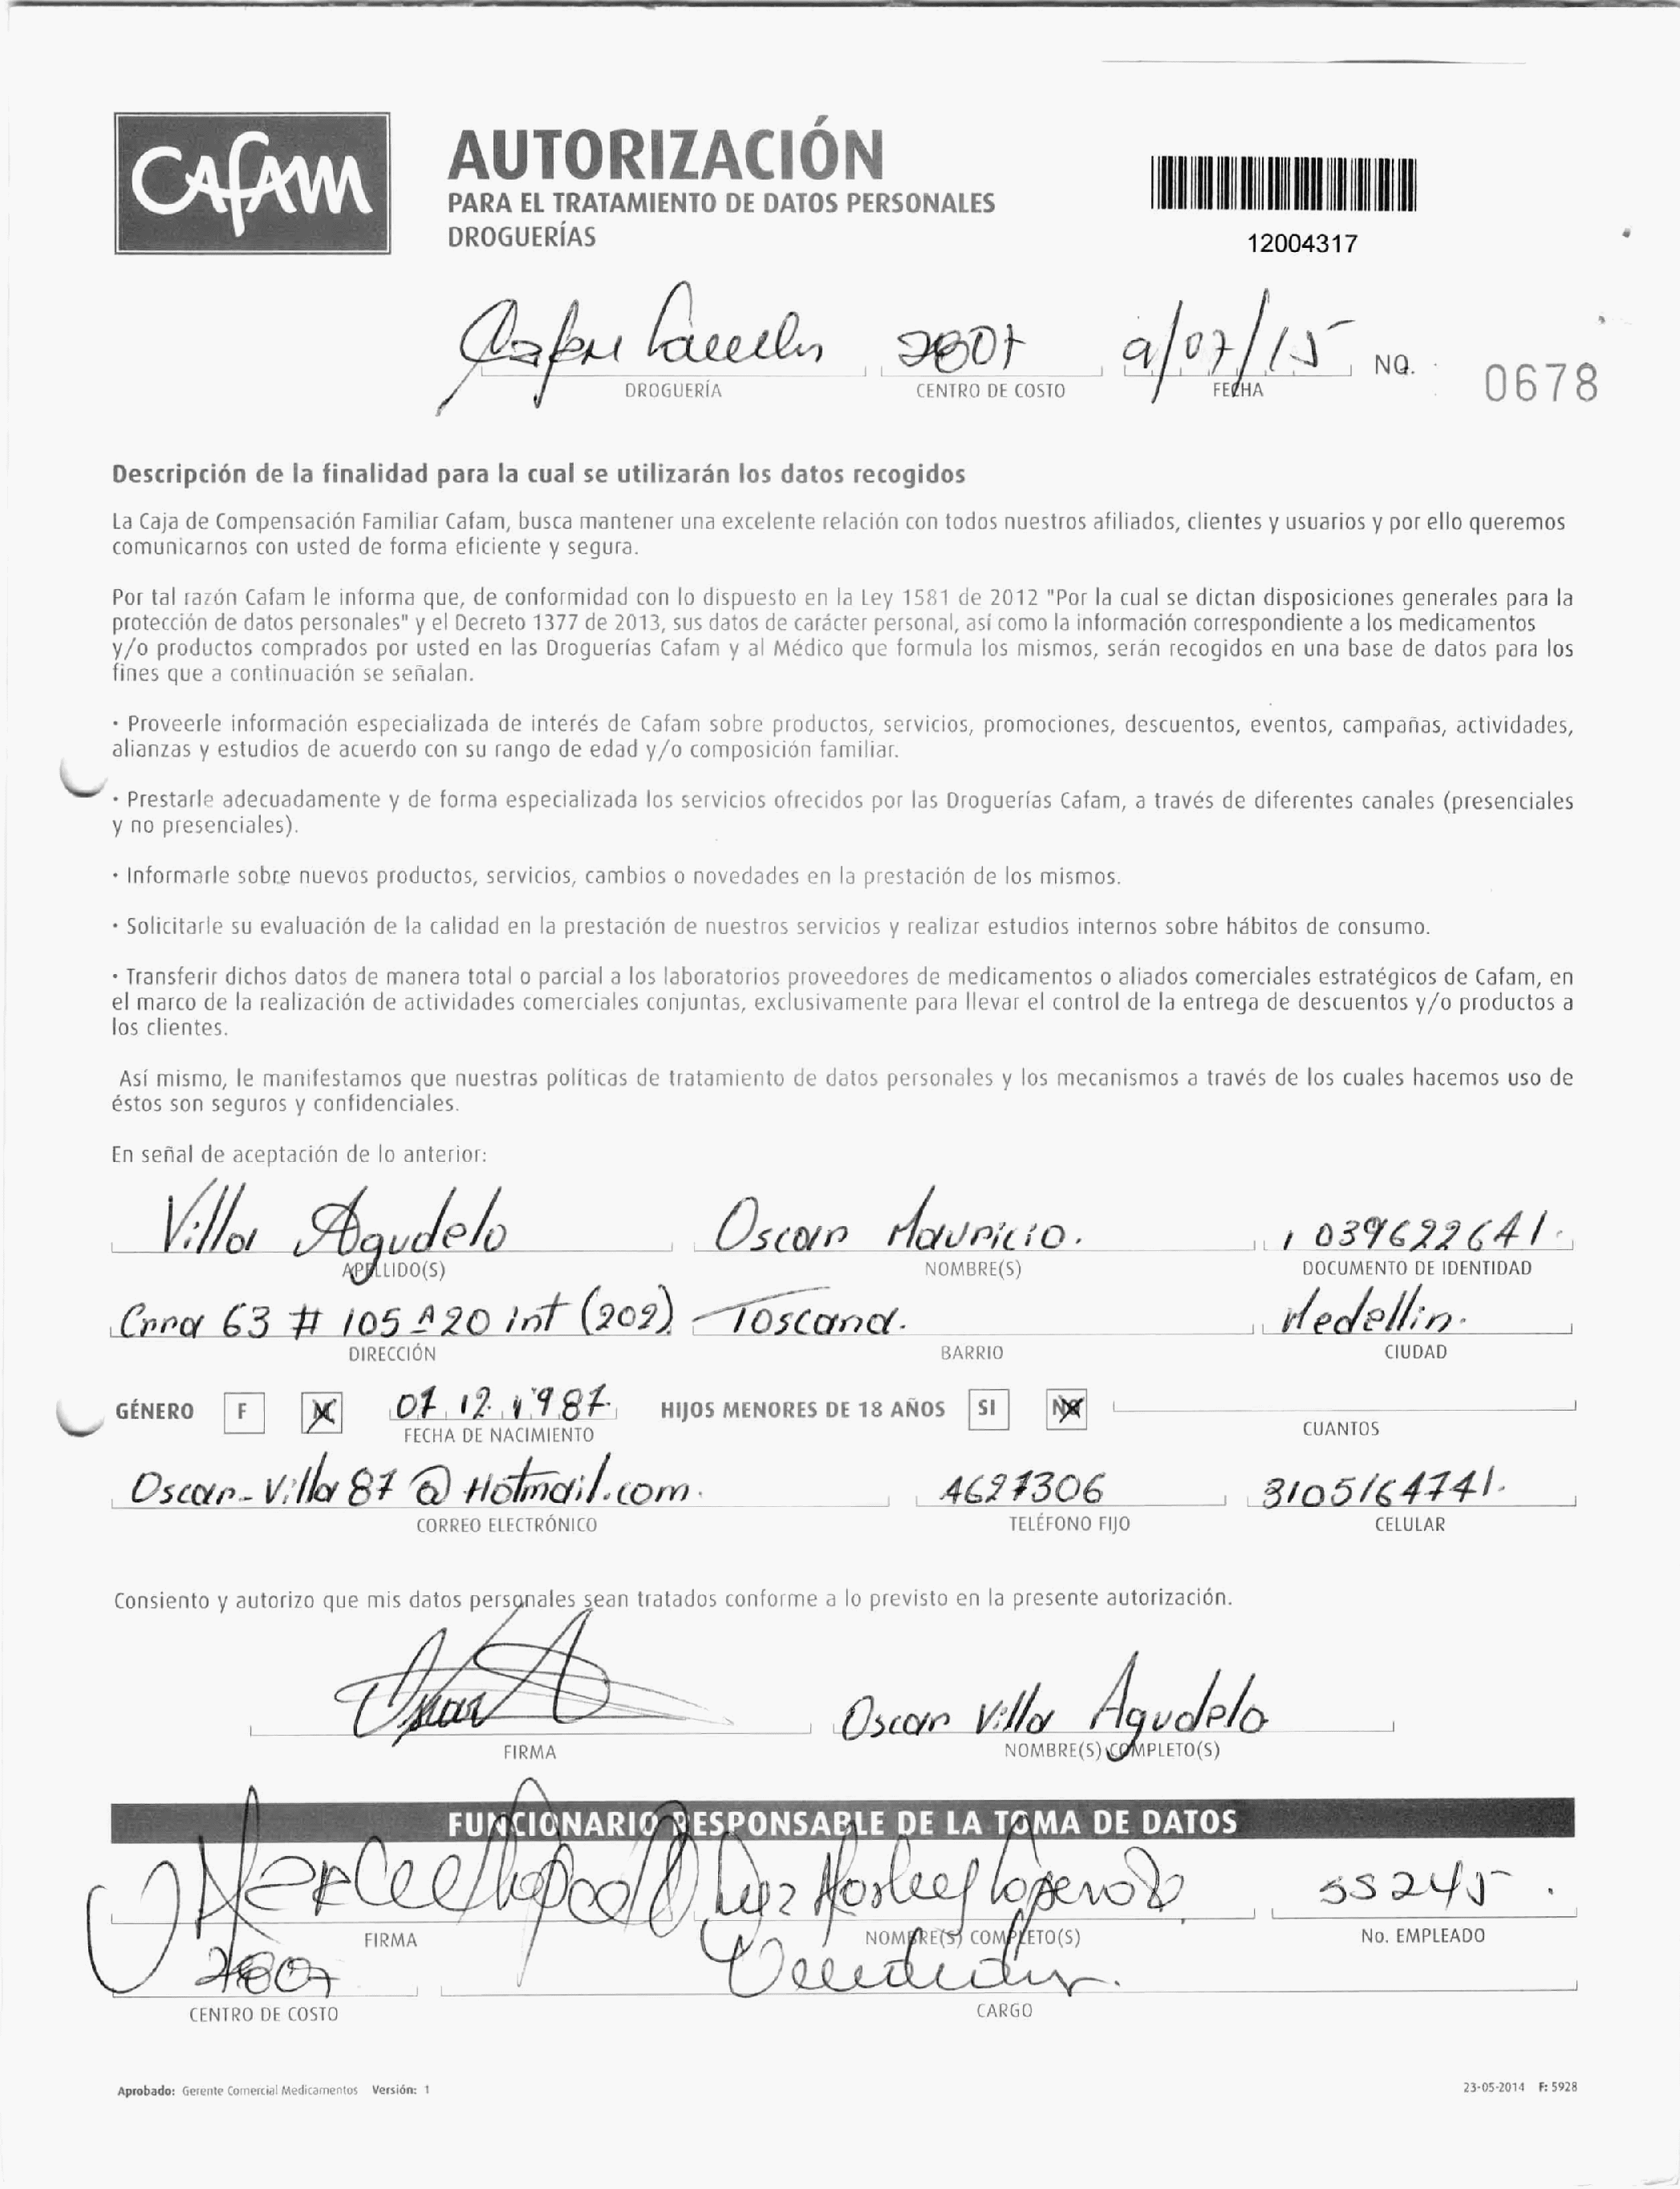 CAFAM
AUTORIZACIÓN
PARA EL TRATAMIENTO DE DATOS PERSONALES
DROGUERÍAS
12004317
9/07/15 NO. 0678
DROGUERÍA CENTRO DE COSTO FECHA
Descripción de la finalidad para la cual se utilizarán los datos recogidos
La Caja de Compensación Familiar Cafam, busca mantener una excelente relación con todos nuestros afiliados, clientes y usuarios y por ello queremos
comunicarnos con usted de forma eficiente y segura.
Por tal razón Cafam le informa que, de conformidad con lo dispuesto en la Ley 1581 de 2012 "Por la cual se dictan disposiciones generales para la
protección de datos personales" y el Decreto 1377 de 2013, sus datos de carácter personal, así como la información correspondiente a los medicamentos
y/o productos comprados por usted en las Droguerías Cafam y al Médico que formula los mismos, serán recogidos en una base de datos para los
fines que a continuación se señalan.
· Proveerle información especializada de interés de Cafam sobre productos, servicios, promociones, descuentos, eventos, campañas, actividades,
alianzas y estudios de acuerdo con su rango de edad y/o composición familiar.
· Prestarle adecuadamente y de forma especializada los servicios ofrecidos por las Droguerías Cafam, a través de diferentes canales (presenciales
y no presenciales).
· Informarle sobre nuevos productos, servicios, cambios o novedades en la prestación de los mismos.
· Solicitarle su evaluación de la calidad en la prestación de nuestros servicios y realizar estudios internos sobre hábitos de consumo.
· Transferir dichos datos de manera total o parcial a los laboratorios proveedores de medicamentos o aliados comerciales estratégicos de Cafam, en
el marco de la realización de actividades comerciales conjuntas, exclusivamente para llevar el control de la entrega de descuentos y/o productos a
los clientes.
Así mismo, le manifestamos que nuestras políticas de tratamiento de datos personales y los mecanismos a través de los cuales hacemos uso de
éstos son seguros y confidenciales.
En señal de aceptación de lo anterior:
Villa Agudelo Oscar Mauricio. 1039622641.
APELLIDO(S) NOMBRE(S) DOCUMENTO DE IDENTIDAD
Crra 63 # 105 A 20 int (202) Toscana. Medellin.
DIRECCIÓN BARRIO CIUDAD
GÉNERO F M 07 12 1987 HIJOS MENORES DE 18 AÑOS SI NO
FECHA DE NACIMIENTO CUANTOS
Oscar-Villa87@Hotmail.com. 4627306 3105164741.
CORREO ELECTRÓNICO TELÉFONO FIJO CELULAR
Consiento y autorizo que mis datos personales sean tratados conforme a lo previsto en la presente autorización.
Oscar Villa Agudelo
FIRMA NOMBRE(S) COMPLETO(S)
FUNCIONARIO RESPONSABLE DE LA TOMA DE DATOS
Luz 55245.
FIRMA NOMBRE(S) COMPLETO(S) No. EMPLEADO
CENTRO DE COSTO CARGO
Aprobado: Gerente Comercial Medicamentos Versión: 1 23-05-2014 F: 5928